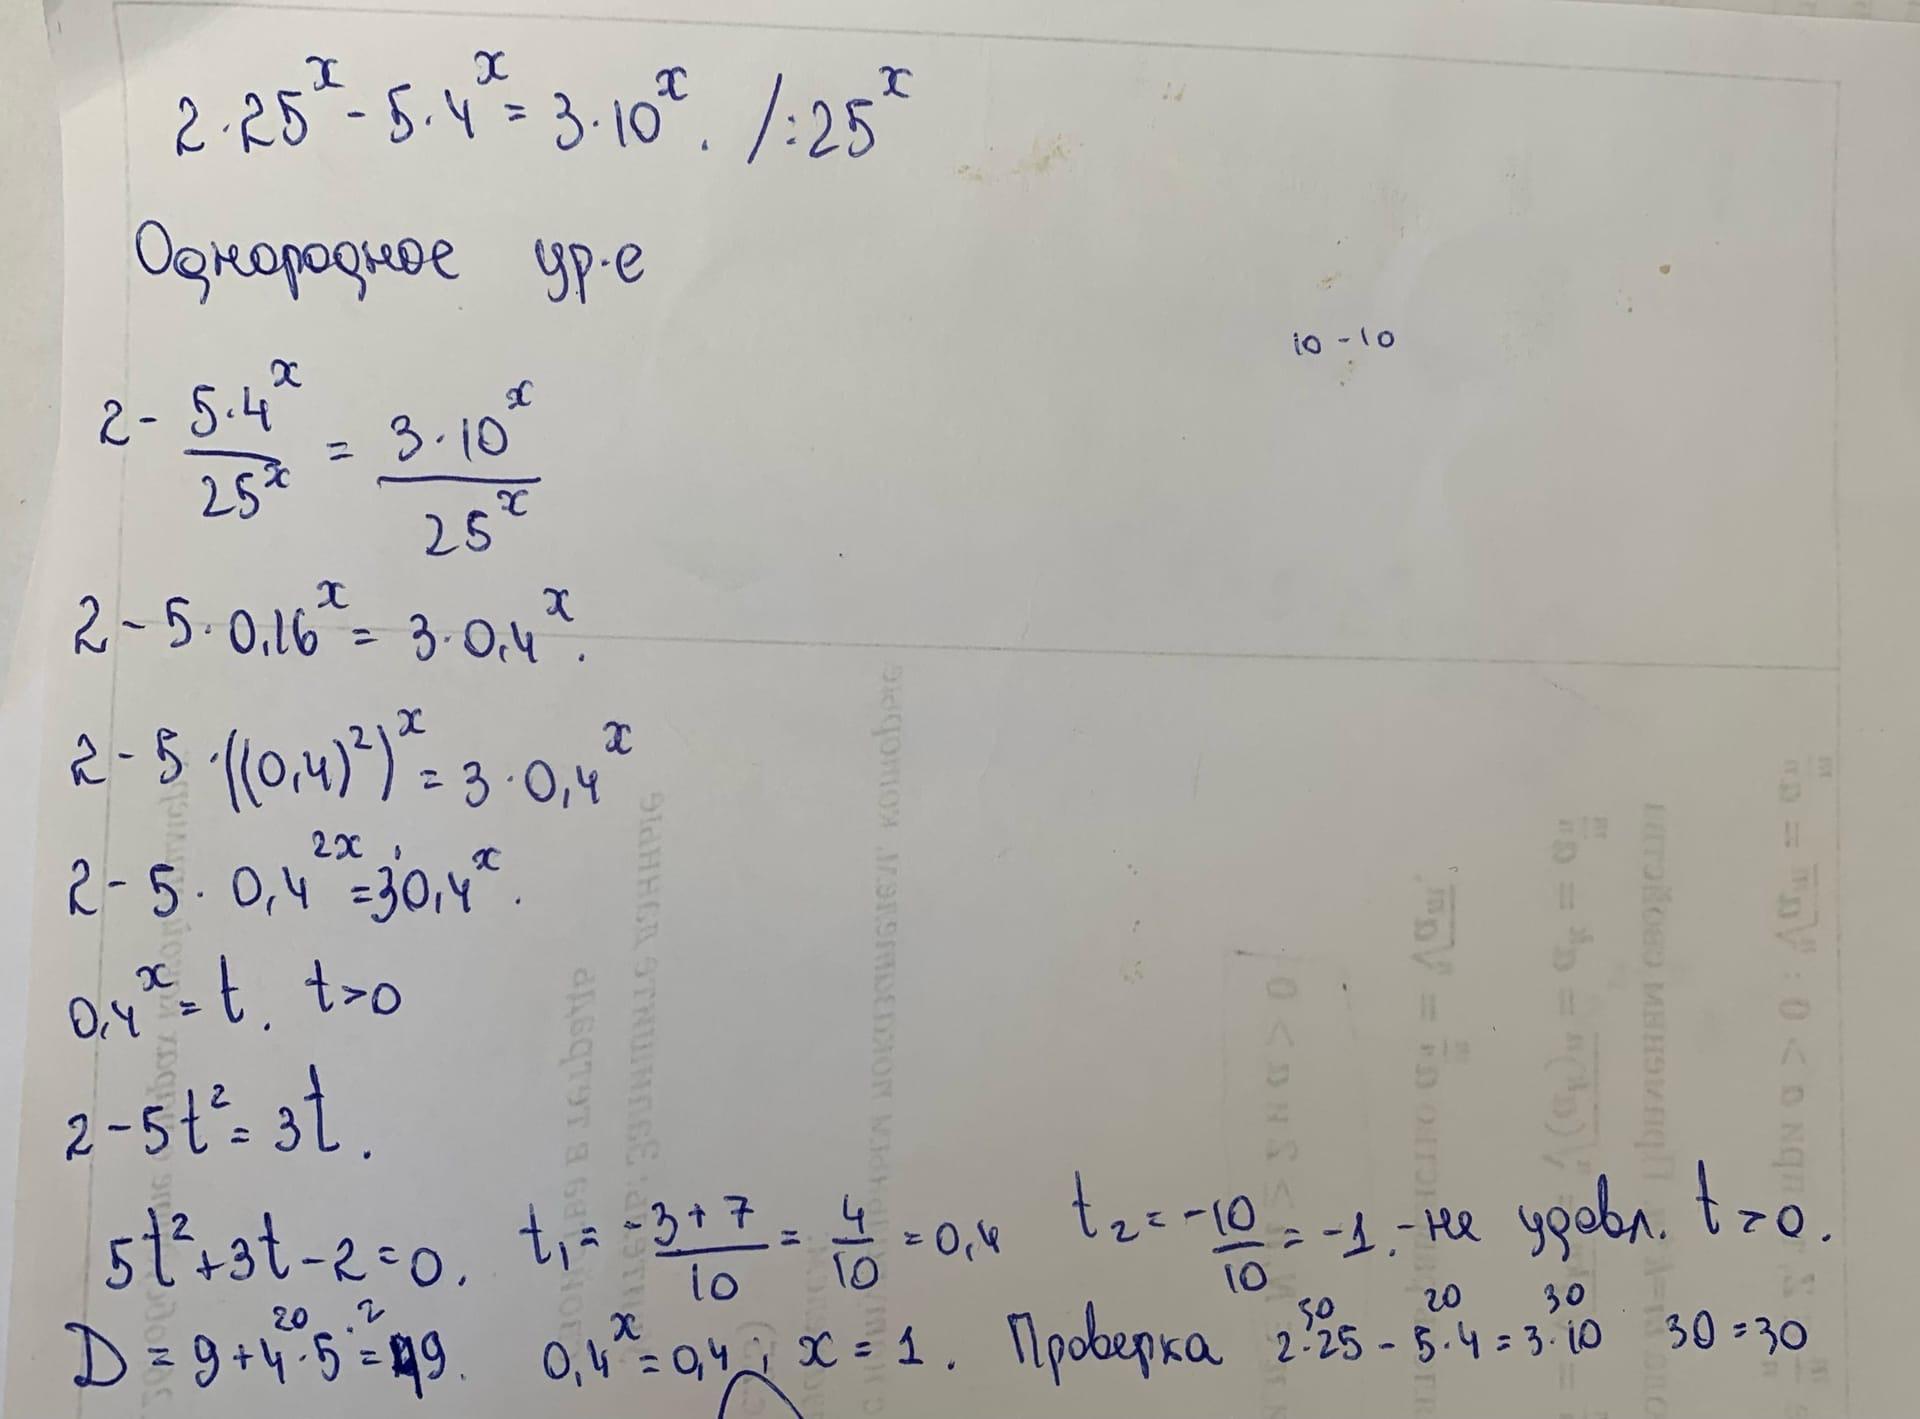 2·25ˣ - 5·4ˣ = 3·10ˣ. /:25ˣ
Однородное ур-е
10 - 10
2 - 5·4ˣ/25ˣ = 3·10ˣ/25ˣ
2 - 5·0,16ˣ = 3·0,4ˣ.
2 - 5·((0,4)²)ˣ = 3·0,4ˣ
2 - 5·0,4²ˣ = 3·0,4ˣ.
0,4ˣ = t. t>0
2 - 5t² = 3t.
5t² + 3t - 2 = 0. t₁ = -3+7/10 = 4/10 = 0,4 t₂ = -10/10 = -1. - не удовл. t>0.
20 50 20 30
D = 9 + 4·5·2 = 49. 0,4ˣ = 0,4; x = 1. Проверка 2·25 - 5·4 = 3·10 30 = 30